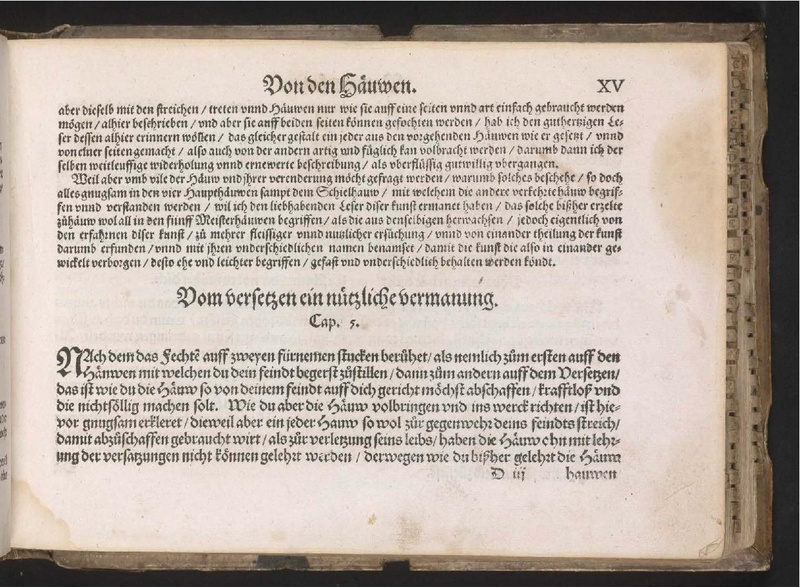 Von den Häuwen.
XV
aber dieselb mit den streichen / treten vnnd Häuwen nur wie sie auff eine seiten vnnd art einfach gebraucht werden
mögen / alhier beschrieben / vnd aber sie auff beiden seiten können gefochten werden / hab ich den guthertzigen Le-
ser dessen alhier erinnern wöllen / das gleicher gestalt ein jeder aus den vorgehenden Häuwen wie er gesetzt / vnnd
von einer seiten gemacht / also auch von der andern artig vnd füglich kan volbracht werden / darumb dann ich der
selben weitleuffige widerholung vnnd ernewerte beschreibung / als vberflüssig gutwillig vbergangen.
Weil aber vmb vile der Häuw vnd jhrer verenderung möcht gefragt werden / warumb solches beschehe / so doch
alles gnugsam in den vier Haupthäuwen sampt dem Schielhauw / mit welchem die andere verkehrte häuw begrif-
fen vnnd verstanden werden / wil ich den liebhabenden Leser diser kunst ermanet haben / das solche bißher erzelte
zůhäuw wol all in den fünff Meisterhäuwen begriffen / als die aus denselbigen herwachsen / jedoch eigentlich von
den erfahrnen diser kunst / zů mehrer fleissiger vnnd nutzlicher ersůchung / vnnd von einander theilung der kunst
darumb erfunden / vnnd mit jhren vnderschiedlichen namen benamset / damit die kunst die also in einander ge-
wickelt verborgen / desto ehe vnd leichter begriffen / gefast vnd vnderschiedlich behalten werden köndt.
Vom versetzen ein nützliche vermanung.
Cap. 5.
NAch dem das Fechtẽ auff zweyen fürnemen stucken berůhet / als nemlich zům ersten auff den
Häuwen mit welchen du dein feindt begerst zůstillen / dann zům andern auff dem Versetzen /
das ist wie du die Häuw so von deinem feindt auff dich gericht möchst abschaffen / krafftloß vnd
die nichtsöllig machen solt. Wie du aber die Häuw volbringen vnd ins werck richten / ist hie-
vor gnugsam erkleret / dieweil aber ein jeder Hauw so wol zůr gegenwehr deins feindts streich /
damit abzůschaffen gebraucht wirt / als zůr verletzung seins leibs / haben die Häuw ohn mit lehr-
ung der versatzungen nicht können gelehrt werden / derwegen wie du bißher gelehrt die Häuw
D iij
hauwen